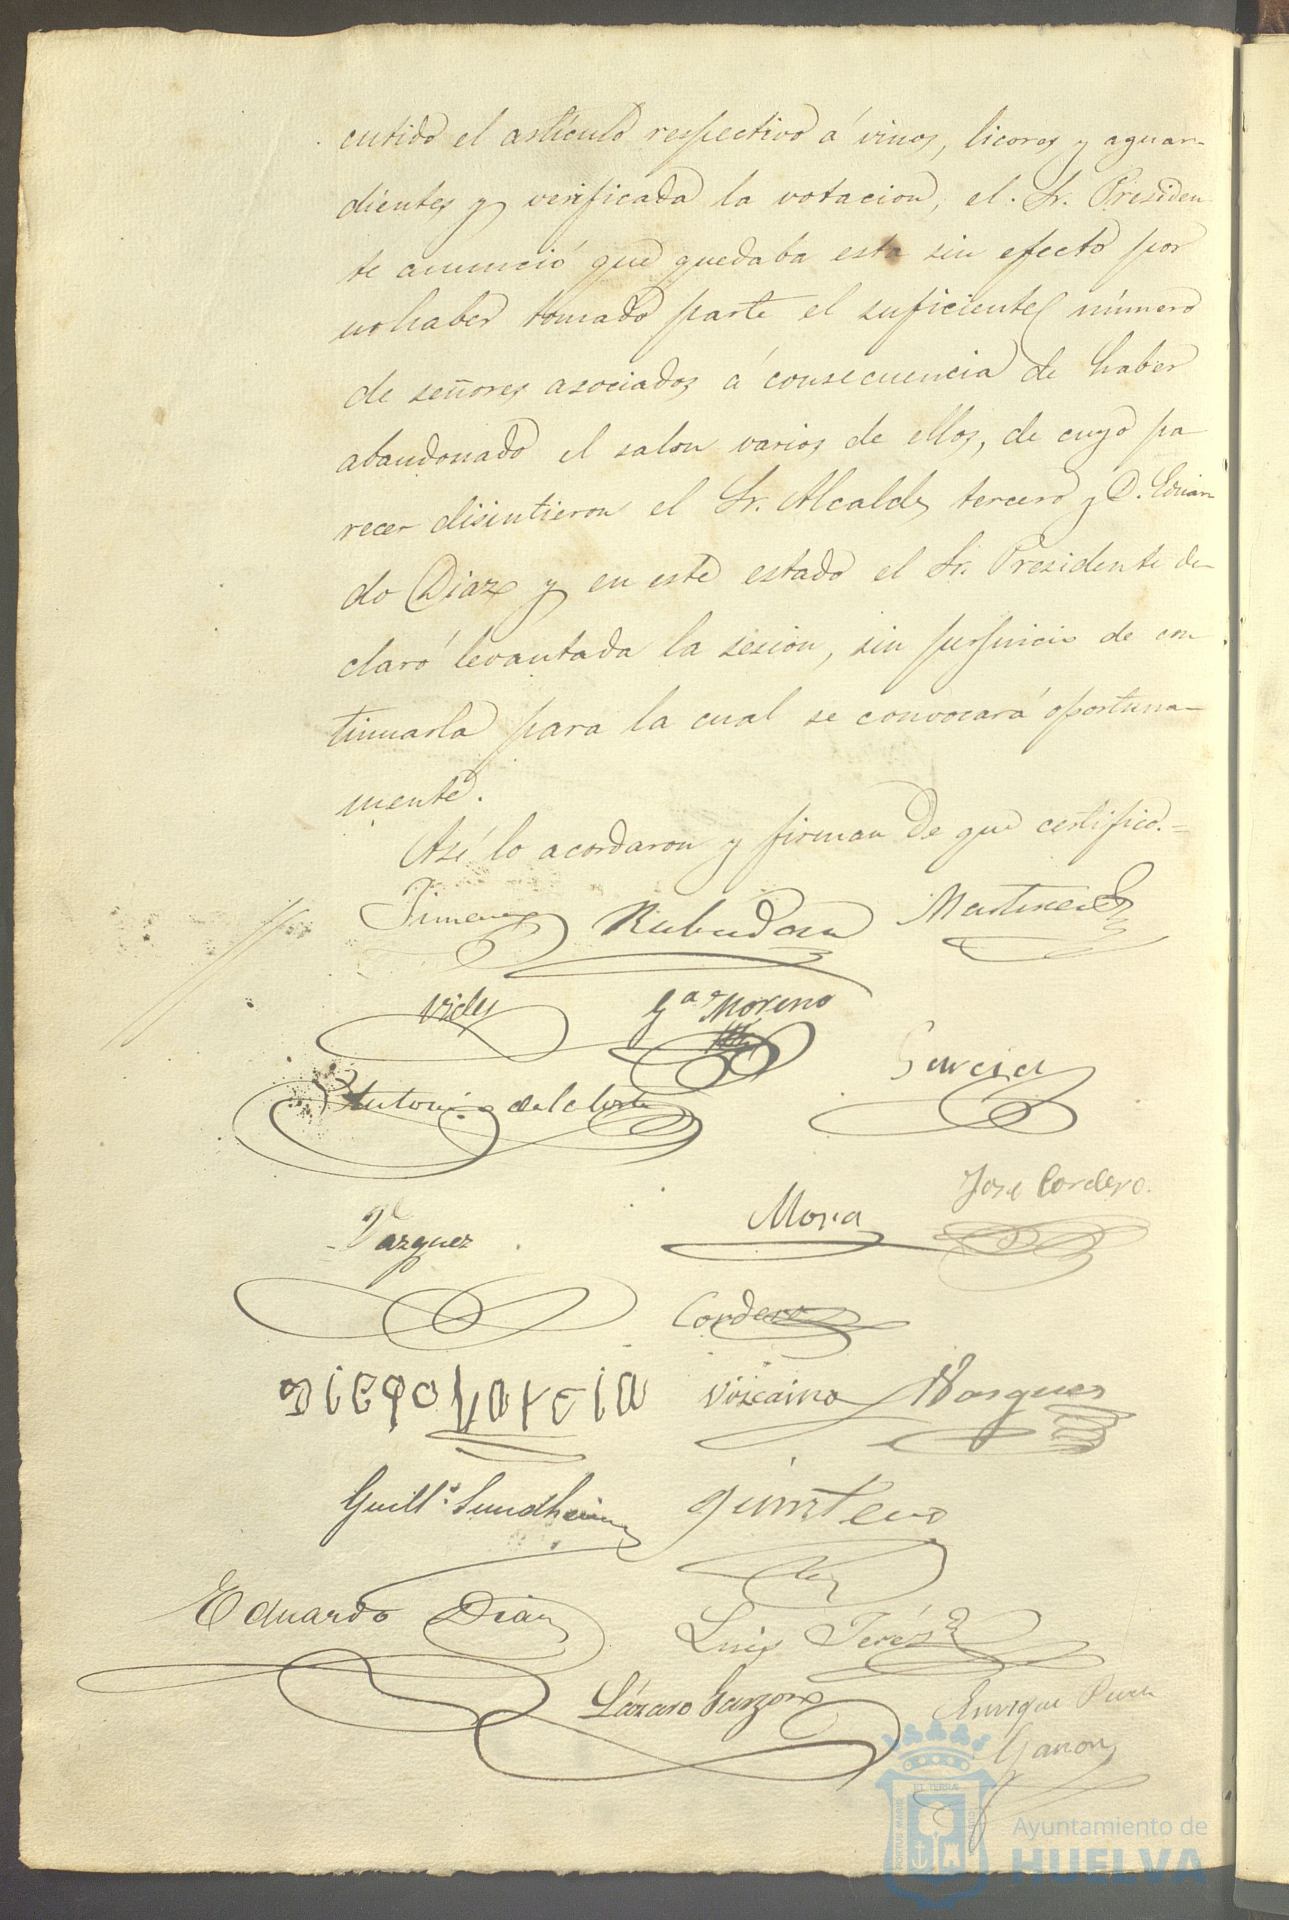 cutido el artículo respectivo á vinos, licores y aguar-
dientes y verificada la votacion, el Sr. Presiden
te anunció que quedaba esta sin efecto por
no haber tomado parte el suficiente número
de señores asociados á consecuencia de haber
abandonado el salon varios de ellos, de cuyo pa
recer disintieron el Sr. Alcalde tercero y D. Eduar
do Diaz y en este estado el Sr. Presidente de-
claró levantada la sesion, sin perjuicio de con
tinuarla para la cual se convocará oportuna-
mente.
Así lo acordaron y firman de que certifico.=
Jimenez Martinez
Gª Moreno
Garcia
Antonio de la Corte
José Cordero.
Vazquez Mora
Cordero
DIEGO GARCIA Vizcaino Vazquez
Guillº Sundheim Quintero
Eduardo Diaz Luis Jeréz
Lázaro Garzon Enrique
Ganon
ET TERRAE
PORTUS MARIS
CUSTODIA
Ayuntamiento de
HUELVA